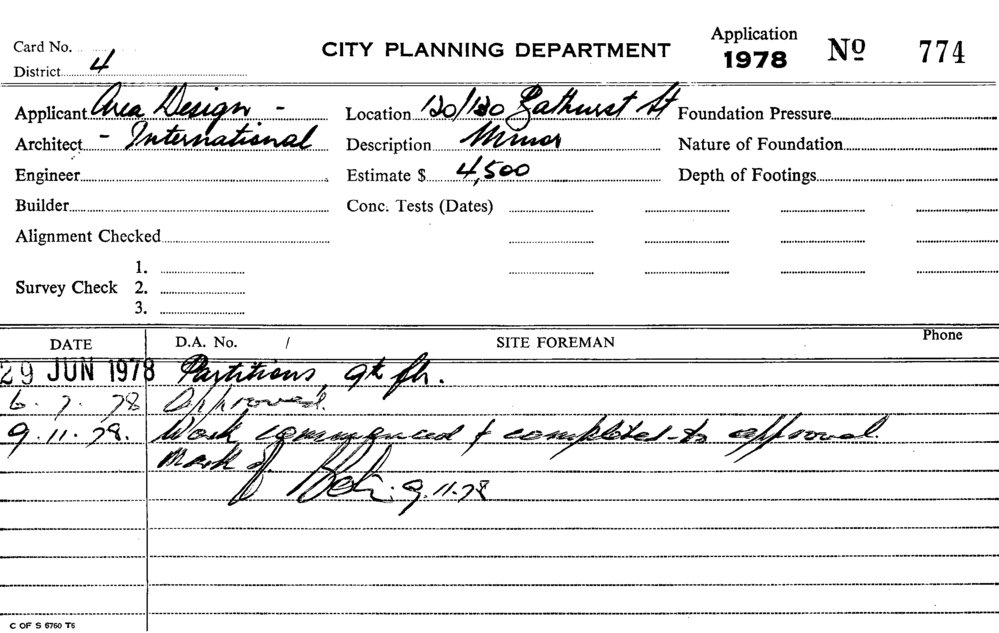 Application
Card No.
CITY PLANNING DEPARTMENT
1978 Nº 774
District 4
Applicant Area Design - Location 120/130 Bathurst St Foundation Pressure
Architect - International Description Minor Nature of Foundation
Engineer Estimate $ 4,500 Depth of Footings
Builder Conc. Tests (Dates)
Alignment Checked
1.
Survey Check 2.
3.
DATE D.A. No. / SITE FOREMAN Phone
29 JUN 1978 Partitions, 9th flr.
6.7.78 Approved.
9.11.78. Work commenced & completed to approval.
Mark
9.11.78
C OF S 6760 T6